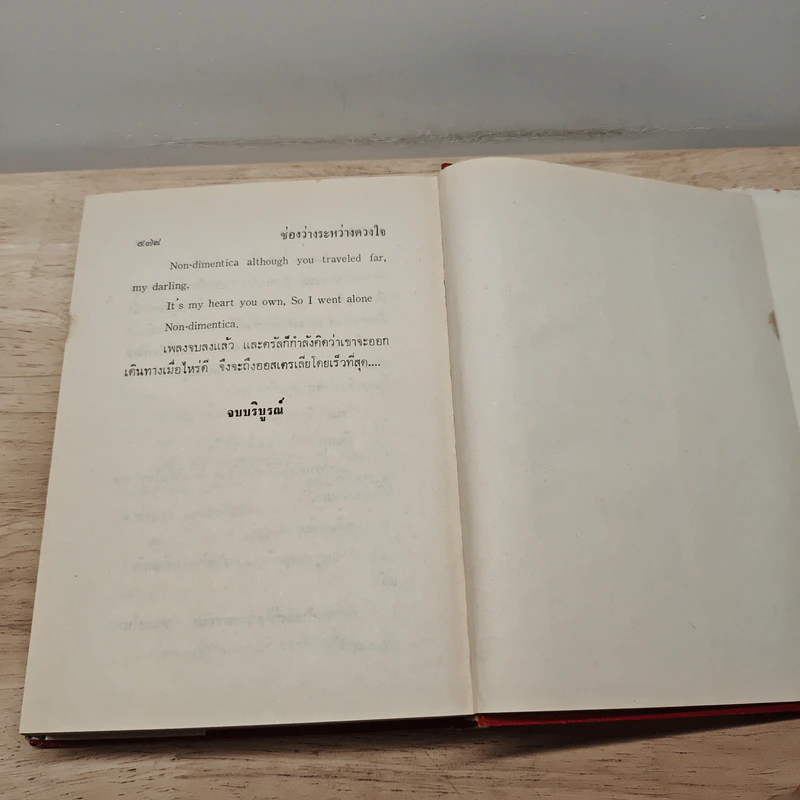 ๔๗๘ ช่องว่างระหว่างดวงใจ
Non-dimentica although you traveled far,
my darling.
It's my heart you own, So I went alone
Non-dimentica.
เพลงจบลงแล้ว และดรัลก็กำลังคิดว่าเขาจะออก
เดินทางเมื่อไหร่ดี จึงจะถึงออสเตรเลียโดยเร็วที่สุด....
จบบริบูรณ์